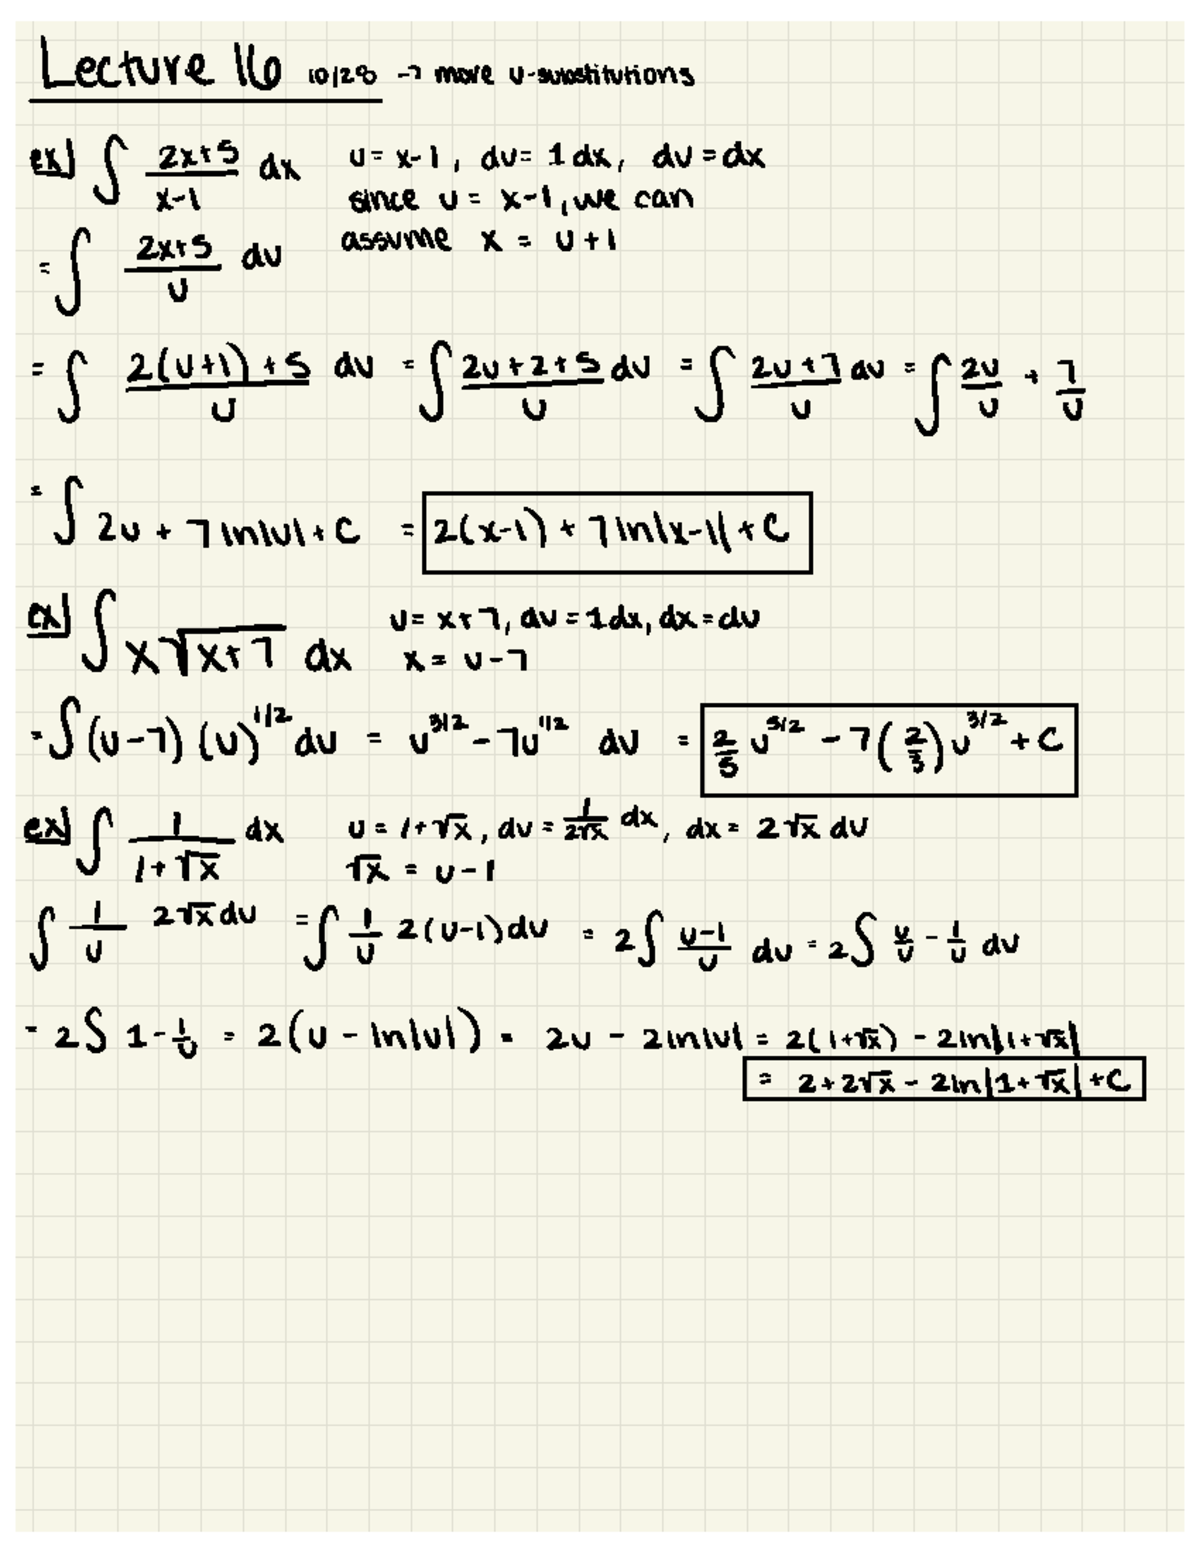 Lecture 16 10/28 → more u-substitutions
ex] ∫ (2x+5)/(x-1) dx u = x-1, du = 1 dx, du = dx
since u = x-1, we can
assume x = u+1
= ∫ (2x+5)/u du
= ∫ (2(u+1)+5)/u du = ∫ (2u+2+5)/u du = ∫ (2u+7)/u du = ∫ 2u/u + 7/u
= ∫ 2u + 7 ln|u| + C = 2(x-1) + 7 ln|x-1| + C
ex] ∫ x√(x+7) dx u = x+7, du = 1dx, dx = du
x = u-7
= ∫ (u-7) (u)^(1/2) du = u^(3/2) - 7u^(1/2) du = 2/5 u^(5/2) - 7(2/3) u^(3/2) + C
ex] ∫ 1/(1+√x) dx u = 1+√x, du = 1/(2√x) dx, dx = 2√x du
√x = u-1
∫ 1/u 2√x du = ∫ 1/u 2(u-1) du = 2∫ (u-1)/u du = 2∫ u/u - 1/u du
= 2∫ 1 - 1/u = 2(u - ln|u|) = 2u - 2ln|u| = 2(1+√x) - 2ln|1+√x|
= 2+2√x - 2ln|1+√x| + C